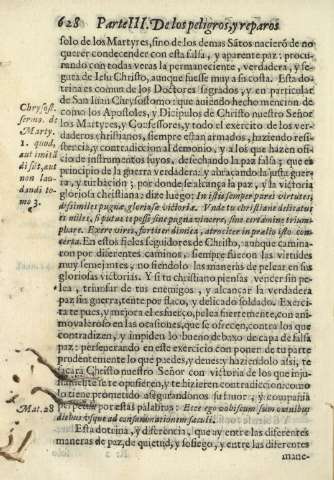 628 Parte III. De los peligros, y reparos
solo de los Martyres, sino de los demas Sãtos naciero de no que-
rer condecender con esta falsa, y aparente paz: procu-
rando con todas veras la permaneciente, verdadera, y se-
gura de Iesu Christo, aunque fuesse muy a su costa. Esta do-
trina es comun de los Doctores sagrados, y en particular
de San Iuan Chrysostomo: que auiendo hecho mencion de
como los Apostoles, y Dicipulos de Christo nuestro Señor
los Martyres, y Confessores, y todo el exercito de los ver-
daderos christianos, siempre estan armados, haziendo resis-
tencia, y contradicion al demonio, y a los que hazen ofi-
cio de instrumentos suyos, desechando la paz falsa: que es
principio de la guerra verdadera: y abraçando la justa guerra
y turbacion; por donde se alcança la paz, y la victoria
gloriosa christiana: dize luego: In istis semper parei virtutes,
nissimiles pugnæ, gloriosæ victoriæ. Valde tu christiane delicatus
es miles, si putas te posse sine pugna vincere, sine certamine trium-
phare. Exere vires, fortiter dimica, atrociter in prælio isto con-
certa. En estos fieles seguidores de Christo, aunque camina-
ron por diferentes caminos, siempre fueron las virtudes
muy semejantes, no siendolo las maneras de pelear en sus
gloriosas victorias. Y si tu christiano piensas vencer sin pe-
lea, triunfar de tus enemigos, y alcançar la verdadera
paz sin guerra, tente por flaco, y delicado soldado. Exerci-
ta te pues, y mejora el esfuerço, pelea fuertemente, con ani-
mo valeroso en las ocasiones, que se ofrecen, contra los que
contradizen, y impiden lo bueno debaxo de capa de falsa
paz: perseuerando en este exercicio con poner de tu parte
prudentemente lo que puedes, y deues; y haziendolo assi, te
sacara Christo nuestro Señor con victoria de los que inju-
stamente se te opusieren, y te hizieren contradicion: como
lo tiene prometido assegurandonos su fauor, y compañia
perpetua por estas palabras: Ecce ego vobiscum sum omnibus
diebus vsque ad consummationem sæculi.
Esta dotrina, y diferencia, que ay entre las diferentes
maneras de paz, de quietud, y sosiego, y entre las diferentes
mane-
Chrysost.
serm. de
Marty.
1. quod,
aut imitã
di sũt, aut
non lau-
dandi to-
mo 3.
Mat. 28